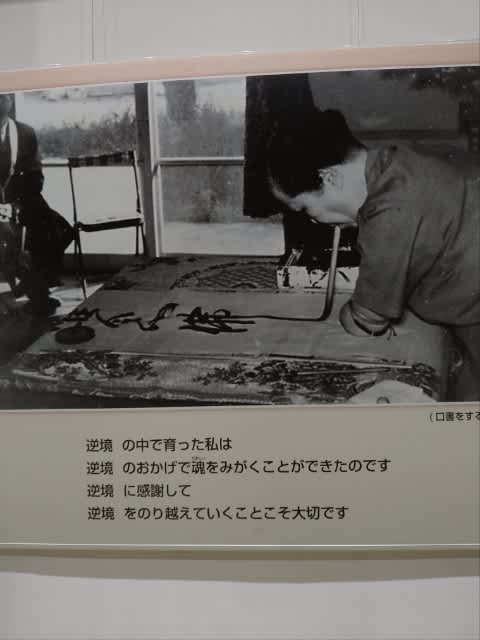 (口書をする
逆境 の中で育った私は
逆境 のおかげで魂をみがくことができたのです
逆境 に感謝して
逆境 をのり越えていくことこそ大切です